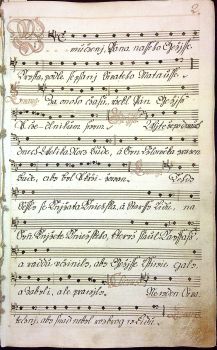 mučenj Pána nasseho Gežjsse
Krysta, podle Sepsanj Swateho Matausse.
Za onoho času, řekl Pan Gežjss
Učedlnikum swym. Wjte že po dwau
dnech Welika Noc bude, a Syn Člowěka zrazen
bude, aby byl Ukřižowan. Tehdy
sessli se Knjžata Kněžska, a Starssi Lidu, na
Syň Knjžete Kněžskeho, ktery slaul Kayfass:
a raddu včinili, aby Gežjsse lstiwě gali,
a zabili, ale prawili: Ne w den Swa-
tečnj, aby snad nebyl rozbrog w Lidu.